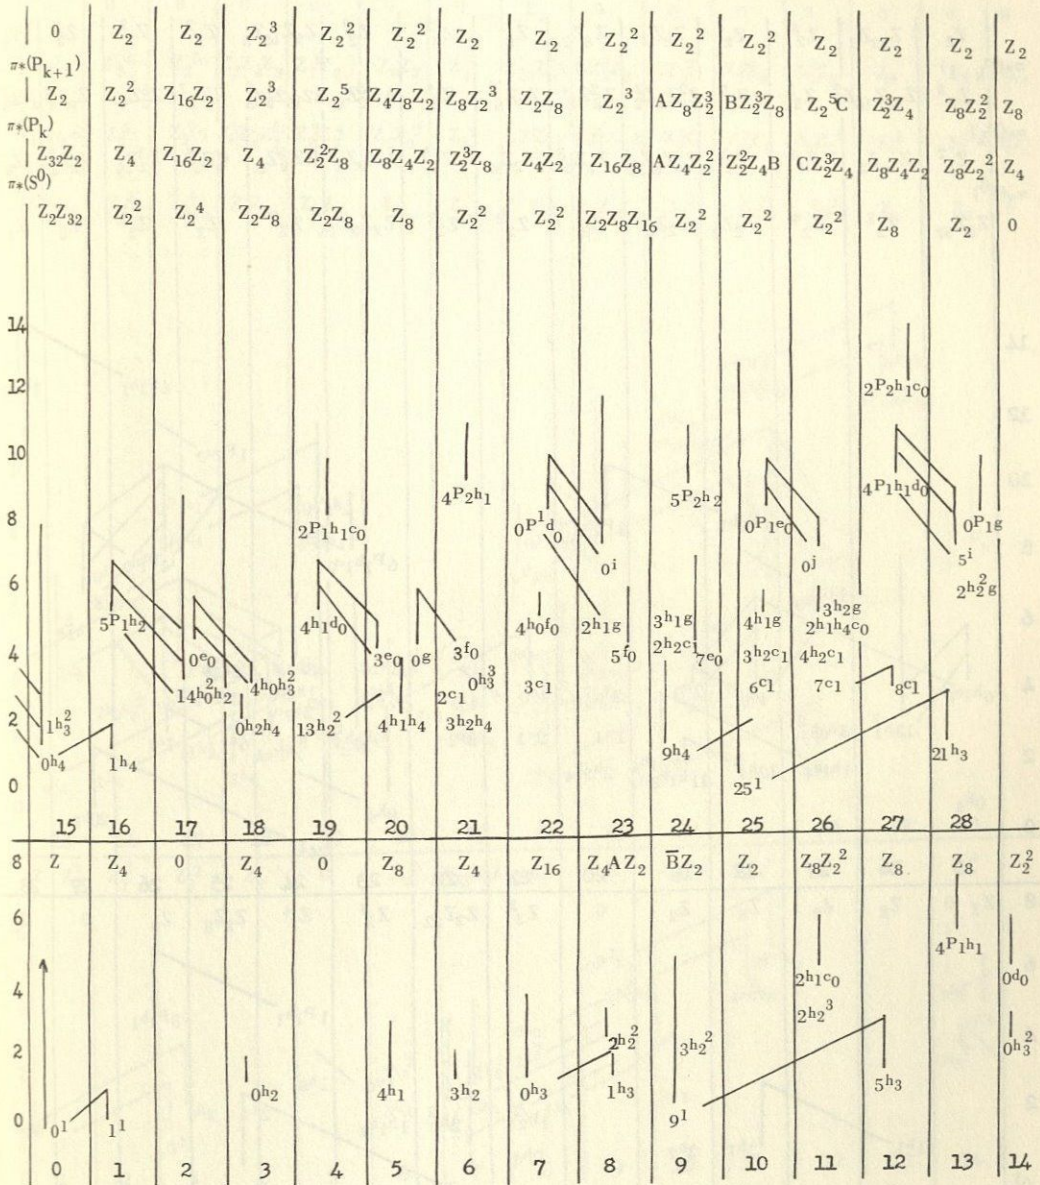 0 Z₂ Z₂ Z₂³ Z₂² Z₂² Z₂ Z₂ Z₂² Z₂² Z₂² Z₂ Z₂ Z₂ Z₂
π*(P_{k+1})
Z₂ Z₂² Z₁₆Z₂ Z₂³ Z₂⁵ Z₄Z₈Z₂ Z₈Z₂³ Z₂Z₈ Z₂³ AZ₈Z₂³ BZ₂³Z₈ Z₂⁵C Z₂³Z₄ Z₈Z₂² Z₈
π*(P_k)
Z₃₂Z₂ Z₄ Z₁₆Z₂ Z₄ Z₂²Z₈ Z₈Z₄Z₂ Z₂³Z₈ Z₄Z₂ Z₁₆Z₈ AZ₄Z₂² Z₂²Z₄B CZ₂³Z₄ Z₈Z₄Z₂ Z₈Z₂² Z₄
π*(S⁰)
Z₂Z₃₂ Z₂² Z₂⁴ Z₂Z₈ Z₂Z₈ Z₈ Z₂² Z₂² Z₂Z₈Z₁₆ Z₂² Z₂² Z₂² Z₈ Z₂ 0
14
12 2P₂h₁c₀
10 4P₂h₁ 5P₂h₂ 4P₁h₁d₀
8 2P₁h₁c₀ 0P¹d₀ 0P₁e₀ 0P₁g
0i 0j 5i
6 2h₂²g
5P₁h₂ 4h₁d₀ 4h₀f₀ 2h₁g 3h₁g 4h₁g 3h₂g
2h₁h₄c₀
4 0e₀ 3e₀ 0g 3f₀ 5f₀ 2h₂c₁ 7e₀ 3h₂c₁ 4h₂c₁
14h₀²h₂ 4h₀h₃² 0h₃³ 2c₁ 3c₁ 6c₁ 7c₁ 8c₁
2 1h₃² 0h₂h₄ 13h₂² 4h₁h₄ 3h₂h₄
0h₄ 1h₄ 9h₄ 21h₃
0 25¹
15 16 17 18 19 20 21 22 23 24 25 26 27 28
8 Z Z₄ 0 Z₄ 0 Z₈ Z₄ Z₁₆ Z₄AZ₂ B̅Z₂ Z₂ Z₈Z₂² Z₈ Z₈ Z₂²
6
4P₁h₁
4 2h₁c₀ 0d₀
2h₂³
2 2h₂² 3h₂² 0h₃²
0h₂ 4h₁ 3h₂ 0h₃ 1h₃ 5h₃
0 0¹ 1¹ 9¹
0 1 2 3 4 5 6 7 8 9 10 11 12 13 14